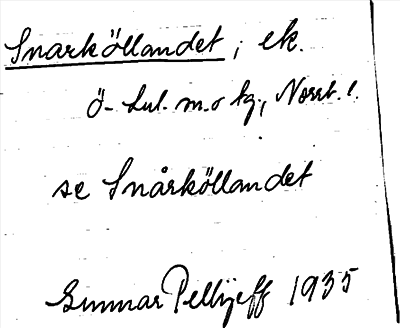 Snarköllandet, ek.
Ö-Lul. m. o kg, Norrb. l.
se Snårköllandet
Gunnar Pellijeff 1935